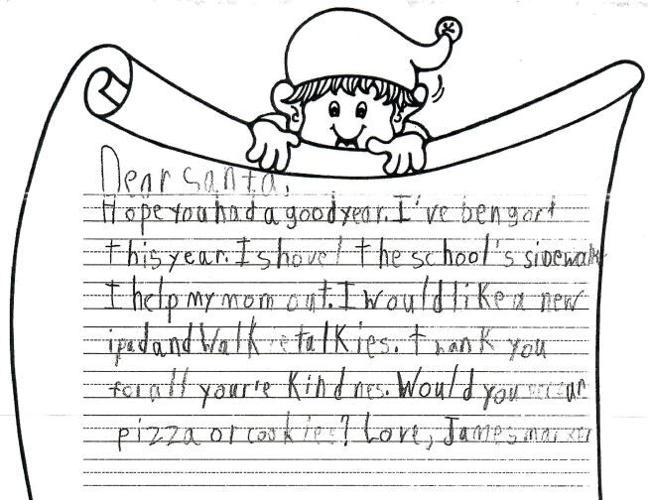 Dear santa,
Hope you had a good year. I've ben
this year. I shovel the school's sidewalk
I help my mom out. I would like a new
ipad and Walkie talkies. thank you
for all your'e Kindnes. Would you
pizza or cookies? Love, James